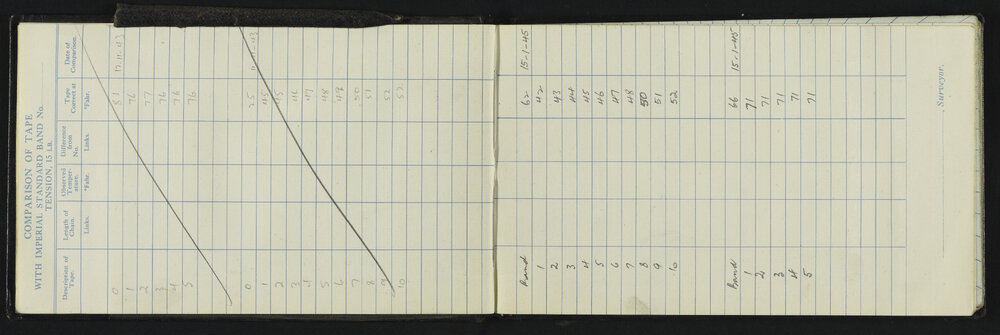 COMPARISON OF TAPE
WITH IMPERIAL STANDARD BAND No.
TENSION, 15 LB.
Description of Tape. Length of Chain. Observed Temper- ature. Difference from No. Tape Correct at Date of Comparison.
Links. °Fahr. Links. °Fahr.
0 81 12.11.43
1 76
2 77
3 76
4 76
5 76
0 11-43
1 45
2 45
3 46
4 47
5 48
6 49
7 50
8 51
9 52
10 52
Band 62 15-1-45
1 42
2 43
3 44
4 45
5 46
6 47
7 48
8 50
9 51
10 52
Band 66 15-1-45
1 71
2 71
3 71
4 71
5 71
, Surveyor.